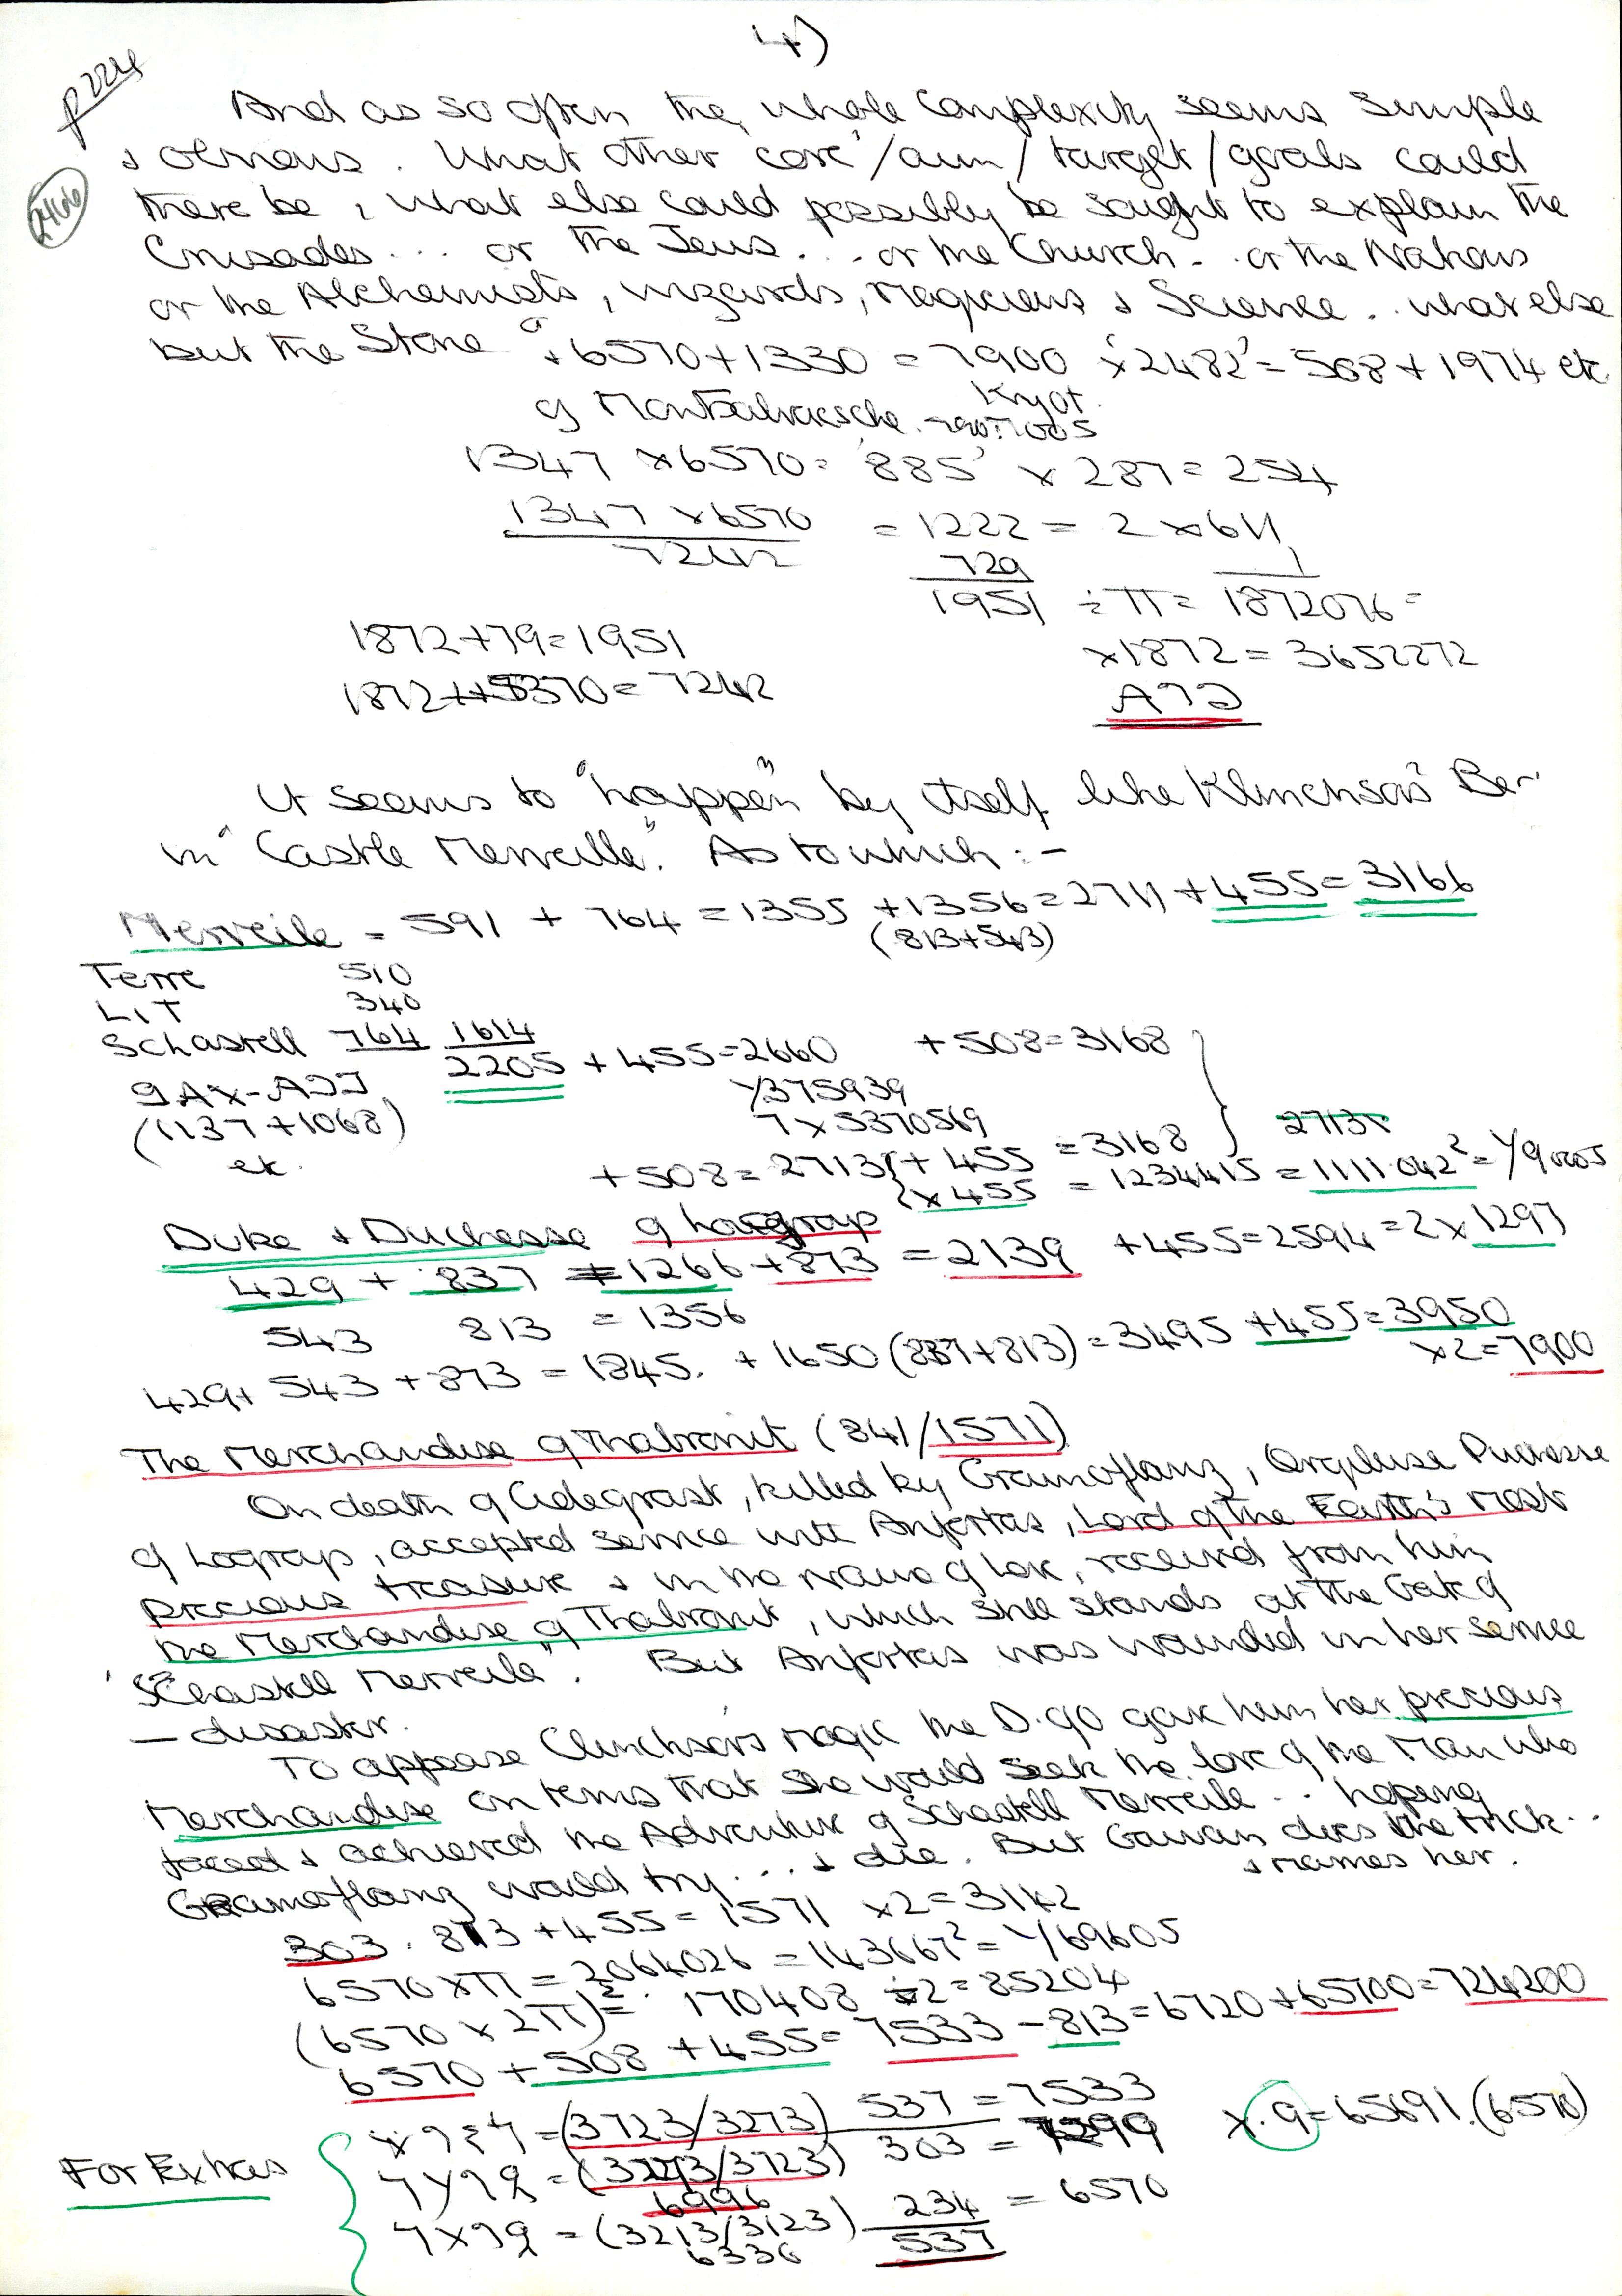 4)
p224
2466
And as so often the, whole complexity seems simple
& obvious. What other core/aim/target/goals could
there be, what else could possibly be sought to explain the
Crusades... or the Jews... or the Church.. or the Nations
or the Alchemists, wizards, magicians & Science.. what else
but the Stone + 6570 + 1330 = 7900 × '2482' = 508 + 1974 etc.
Kyot
1347 × 6570 = '885' × 287 = 254
1347 × 6570 = 1222 = 2 × 611
7242 729
1951 ÷ π = 1872076 =
1872 + 79 = 1951 × 1872 = 3652272
1872 + 5370 = 7242
It seems to "happen" by itself like Klinchsor's Ber
in "Castle Merveille". As to which :-
Merveile = 591 + 764 = 1355 + 1356 = 2711 + 455 = 3166
(813+543)
Terre 510
LIT 340
Schastell 764 1614
2205 + 455 = 2660 + 508 = 3168
1/375939
(1137 + 1068) 7 × 5370569
etc.
+ 508 = 2713 { + 455 = 3168 } 2713
{ × 455 = 1234415 = 1111.042² = 1/9
Duke & Duchesse of Logroys
429 + 837 = 1266 + 873 = 2139 + 455 = 2594 = 2 × 1297
543 813 = 1356
429 + 543 + 873 = 1845. + 1650 (837+813) = 3495 + 455 = 3950
×2 = 7900
The Merchandise of Thabronit (841/1571)
On death of Cidegrast, killed by Gramoflanz, Orgeluse Duchesse
of Logroys, accepted service with Anfortas, Lord of the Earth's Most
precious treasure & in the name of love, received from him
the Merchandise of Thabronit, which still stands at the Gate of
"Schastell Merveile". But Anfortas was wounded in her service
— disaster.
To appease Clinchsor's magic the D. of O gave him her precious
Merchandise on terms that she would seek the love of the Man who
faced & achieved the Adventure of Schastell Merveile .. hoping
Gramoflanz would try ... & die. But Gawan does the trick ..
& names her.
303. 813 + 455 = 1571 × 2 = 3142
6570 × π = 2064026 = 143667² = 1/69605
(6570 × 2π)² = 170408 ÷ 2 = 85204
6570 + 508 + 455 = 7533 - 813 = 6720 + 65700 = 724200
For Extras
= (3723/3273) 537 = 7533
= (3273/3723) 303 = 7299 × .9 = 65691. (6570)
6996
= (3213/3123) 234 = 6570
6336 537